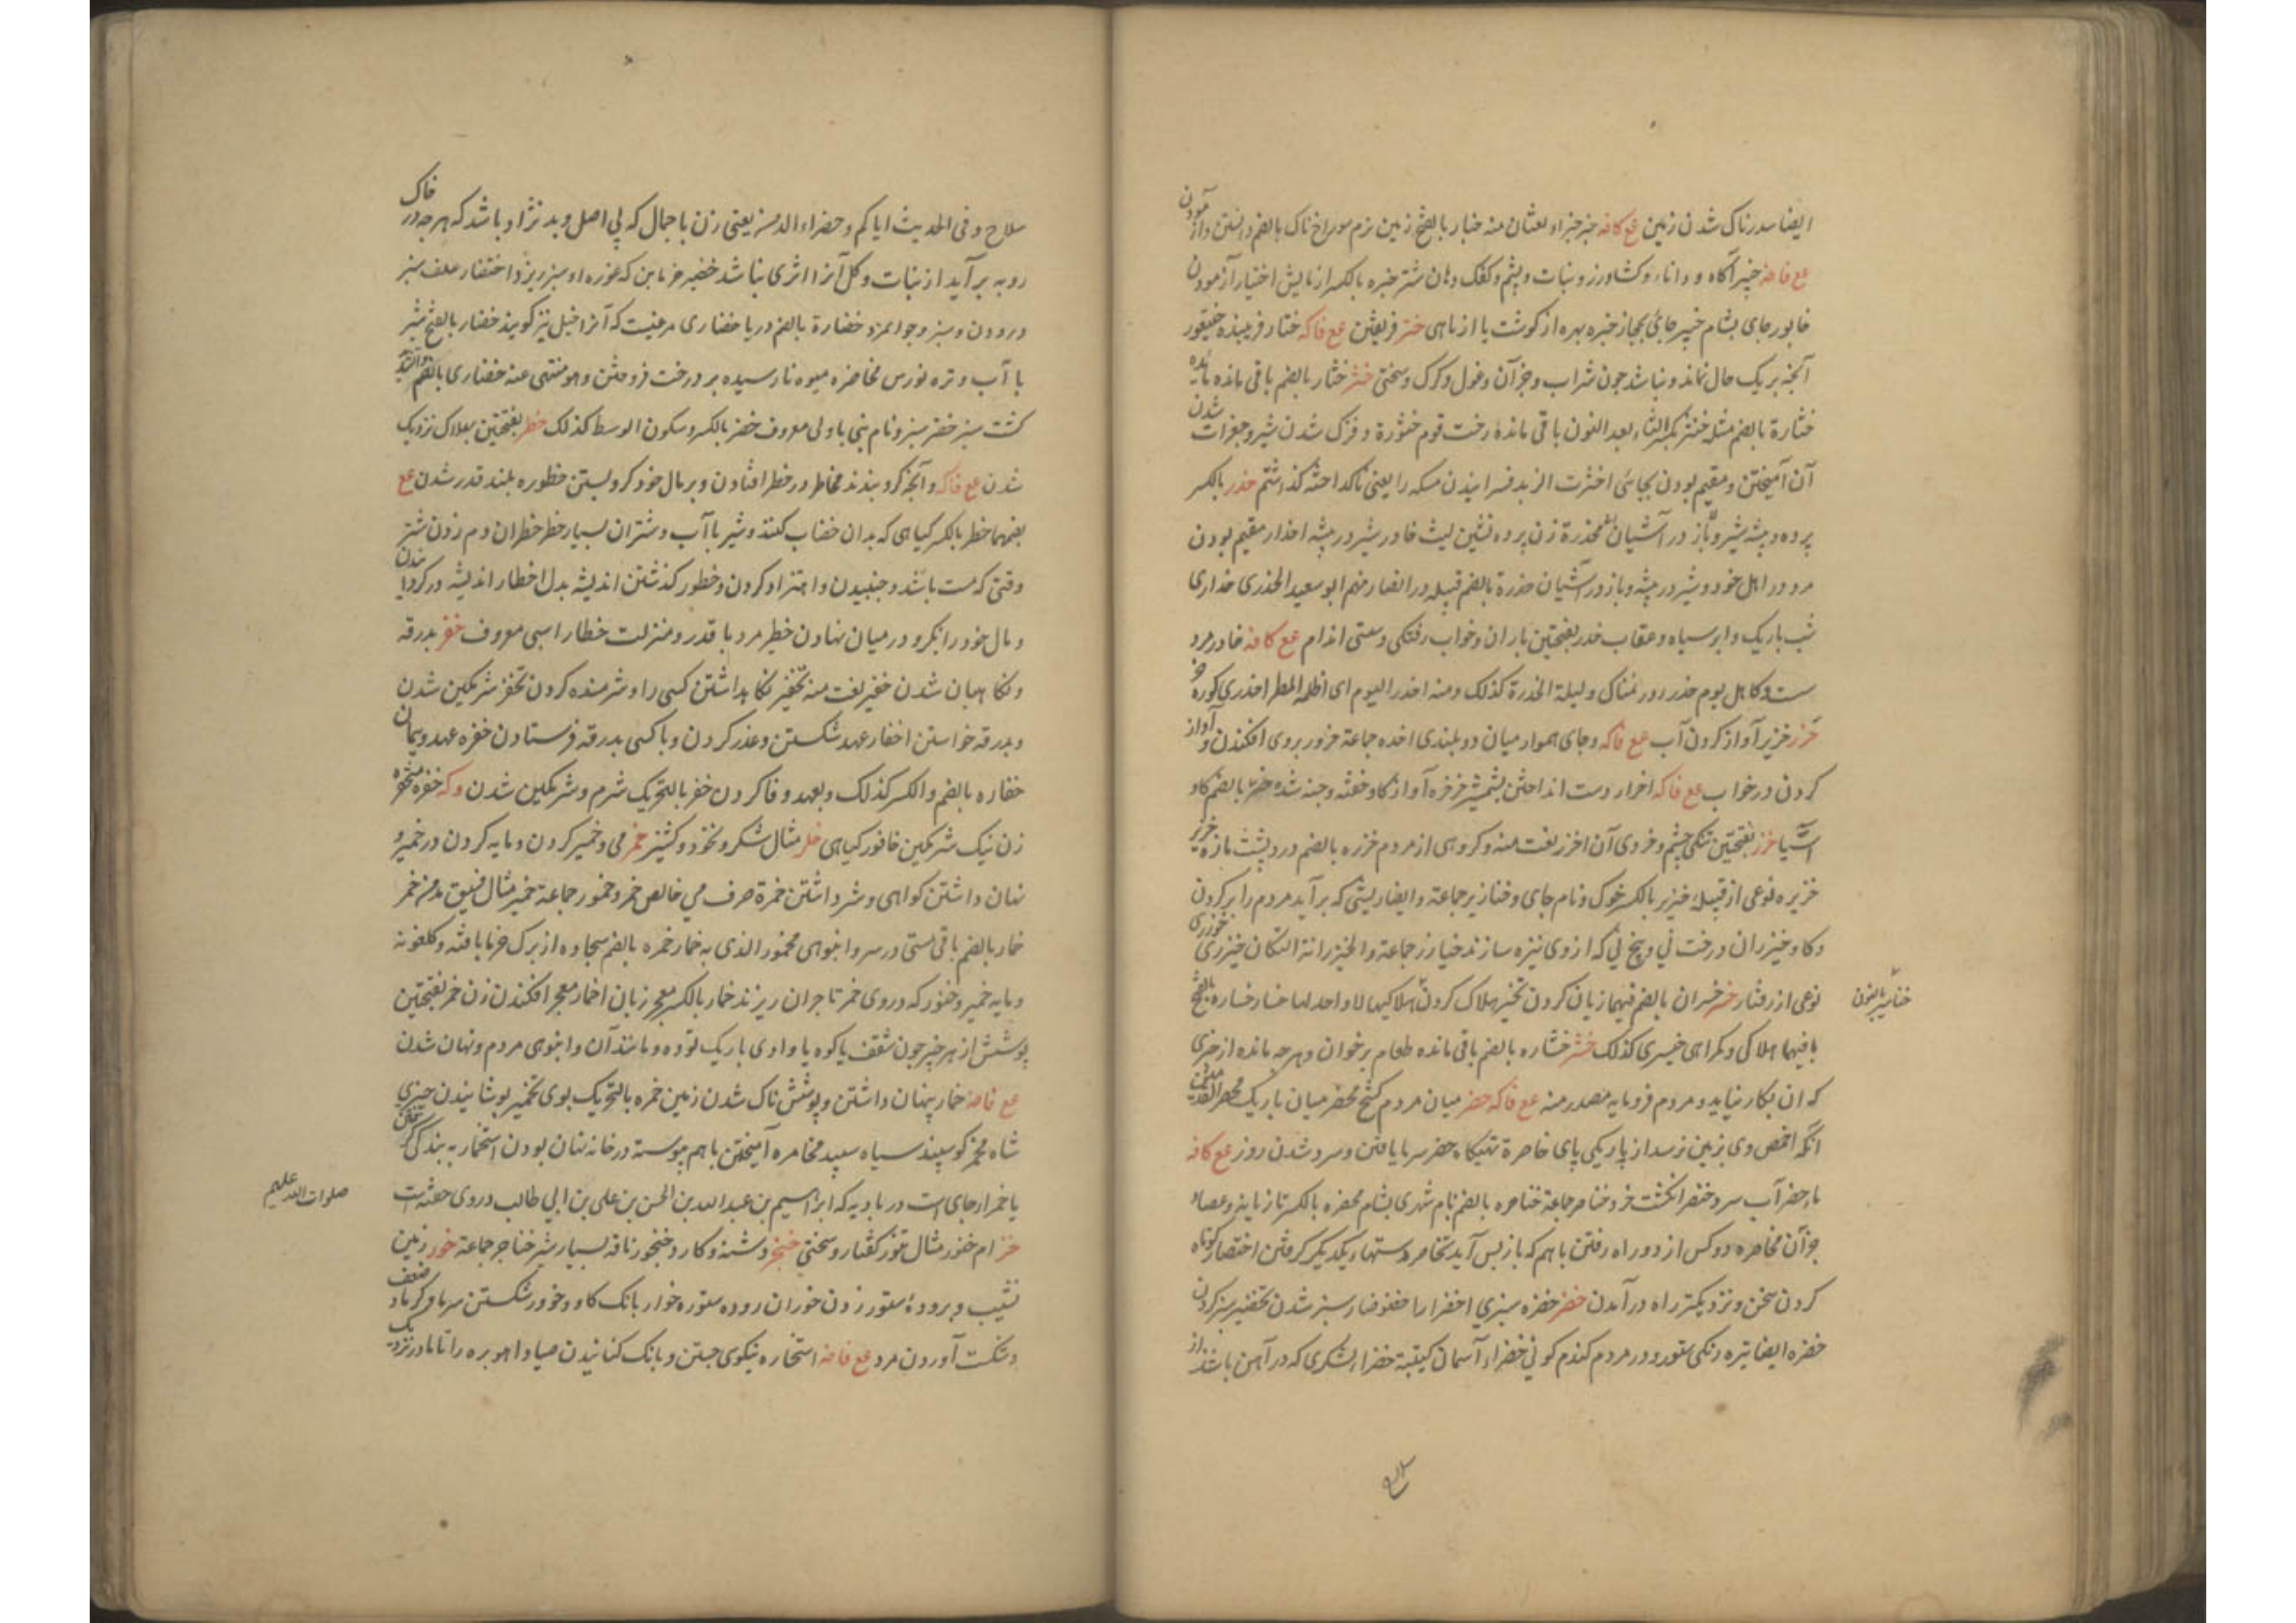 ایضا سدرناک شدن زمین عع کافه خبر خبراء لغتان منه خبار بالفتح زمین نرم سوراخ ناک بالضم دانستن و آزمودن
عع فاضه خبیر آگاه و دانا و کشاورز و نبات و پشم و کفک دهان شتر خبره بالکسر ازمایش اختبار آزمودن
خابور جای بشام خیبر جائی بحجاز خبره بهره از گوشت یا از ماهی ختر فریفتن عع فاکه ختار فریبنده خیتعور
آنچه بر یک حال نماند و نباشد چون شراب و جز آن و غول و گرگ و سختی خثر خثار بالضم باقی مانده مائده
خثارة بالضم مثله خنثر بکسر الثاء بعد النون باقی مانده رخت قوم خثورة دفزک شدن شیر و جغرات شدن
آن آمیختن و مقیم بودن بجائی اخثرت الزبد فسرانیدن مسکه را یعنی ناگداخته گذاشتم خدر بالکسر
پرده و بیشه شیر و باز در آشیان مخدرة زن پرده نشین لیث خادر شیر در بیشه اخدار مقیم بودن
مرد در اهل خود و شیر در بیشه و باز در آشیان خدرة بالضم قبیله در انصار منهم ابو سعید الخدری خداری
شب باریک و ابر سیاه و عقاب خدر بفتحتین باران و خواب رفتگی و سستی اندام عع کافه خادر مرد
ست و کاهل یوم خدر روز نمناک و لیلة الخدرة کذلک و منه اخدر الیوم ای اظله المطر اخدری گوره
خرر خریر آواز کردن آب عع فاکه و جای هموار میان دو بلندی اخره جماعة خرور بروی افکندن و آواز
کردن در خواب عع فاکه اخرار دست انداختن بشمشیر خرخره آواز گاو خفته و جنه شده خر بالضم گاو
آسیا خزر بفتحتین تنگی چشم و خردی آن اخزر نعت منه و گروهی از مردم خزره بالضم درد پشت مازه خزیر
خزیره نوعی از قبیله خنزیر بالکسر خوک و نام جای و خنازیر جماعة و ایضا ریشی که برآید مردم را بر گردن
و گاو خیزران درخت نی و بیخ نی که از وی نیزه سازند خیازر جماعة و الخیزرانة السکان خیزری خوزری
نوعی از رفتار خسر خسران بالضم فیهما زیان کردن تخسیر هلاک کردن خناسر هلاکیها لا واحد لها خسار خساره بالفتح
خناسیر بالنون
بافیهما هلاکی و گمراهی خیسری کذلک خشر خشاره بالضم باقی مانده طعام بر خوان و هر چه مانده از چیزی
که آن بکار نیاید و مردم فرومایه مصدر منه عع فاکه خصر میان مردم کشح مخصر میان باریک مخصر القدمین
آنکه اخمص وی بزمین نرسد از باریکی پای خاصرة تهیگاه خصر سرما یافتن و سرد شدن روز عع کافه
ماء خصر آب سرد خنصر انگشت خرد خناصر جماعة خناصره بالضم نام شهری بشام مخصره بالکسر تازیانه و عصا و
جز آن مخاصره دو کس از دو راه رفتن باهم که باز پس آید تخاصر دستهای یکدیگر گرفتن اختصار کوتاه
کردن سخن و نزدیکتر راه در آمدن خضر خضره سبزی اخضرار اخضیضار سبز شدن تخضیر سبز کردن
خضره ایضا تیره رنگی ستور و در مردم گندم گونی خضراء آسمان کتیبة خضراء لشکری که در آهن باشند از
سلاح
سلاح و فی الحدیث ایاکم و خضراء الدمن یعنی زن با جمال که بی اصل و بد نژاد باشد که هر چه در خاک
روبه برآید از نبات و گل آنرا اثری نباشد خضیر خرمابن که غوره او سبز بریزد اختضار علف سبز
درودن و سبز و جوانمرد خضارة بالضم دریا خضاری مرغیست که آنرا خیل نیز گویند خضار بالفتح شیر
با آب و تره نورس مخاضره میوه نارسیده بر درخت فروختن و هو منتهی عنه خضاری بالضم والتشدید
کشت سبز خضر سبز و نام نبی یا ولی معروف خضر بالکسر و سکون الوسط کذلک خطر بفتحتین بهلاک نزدیک
شدن عع فاکه و آنچه گرو بندند مخاطر در خطر افتادن و بر مال خود گرو بستن خطوره بلند قدر شدن عع
بضمهما خطر بالکسر گیاهی که بدان خضاب کنند و شیر با آب و شتران بسیار خطر خطران دم زدن شتر
وقتی که مست باشد و جنبیدن و اهتزاز کردن و خطور گذشتن اندیشه بدل اخطار اندیشه در گردانیدن
و مال خود را بگرو در میان نهادن خطیر مرد با قدر و منزلت خطار اسپی معروف خفر بدرقه
و نگاهبان شدن خفیر نعت منه تخفیر نگاهداشتن کسی را و شرمنده کردن تخفر شرمگین شدن
و بدرقه خواستن اخفار عهد شکستن و غدر کردن و با کسی بدرقه فرستادن خفره عهد و پیمان
خفاره بالضم والکسر کذلک و بعهد وفا کردن خفر بالتحریک شرم و شرمگین شدن وکه خفره متخفره
زن نیک شرمگین خافور گیاهی خلر مثال شکر و نخود و کشنیز خمر می و خمیر کردن و مایه کردن در خمیر و
نهان داشتن گواهی و شرم داشتن خمرة صرف می خالص خمر و خمور جماعة خمیر مثال فسیق مدمن خمر
خمار بالضم باقی مستی در سر و انبوهی مخمور الذی به خمار خمره بالضم سجاده از برگ خرما بافته و گلغونه
و مایه خمیر و خنور که در وی خمر تاجران ریزند خمار بالکسر معجر زنان اخمار معجر افکندن زن خمر بفتحتین
پوشش از هر چیز چون سقف یا کوه یا وادی باریک توده و مانند آن و انبوهی مردم و نهان شدن
عع فاضه خمار پنهان داشتن و پوشش ناک شدن زمین خمره بالتحریک بوی تخمیر پوشانیدن چیزی
شاه مخمر گوسپند سیاه سپید مخامره آمیختن باهم پیوسته در خانه نهان بودن استخمار به بندگی گرفتن
یا خمرا رجای است در بادیه که ابراهیم بن عبد الله بن الحسن بن علی بن ابی طالب در وی خفته است
صلوات الله علیهم
خنر ام خنور مثال تنور کفتار و سختی خنجر دشنه و کارد خنجور ناقه بسیار شیر خناجر جماعة خور زمین
نشیب و بروده ستور زدن خوران روده ستور خوار بانگ گاو و خوور شکستن سرما و گرما و ضعف
و شکست آوردن مرد عع فاضه استخاره نیکوی جستن و بانگ کنانیدن صیاد آهو بره را تا مادر نزدیک